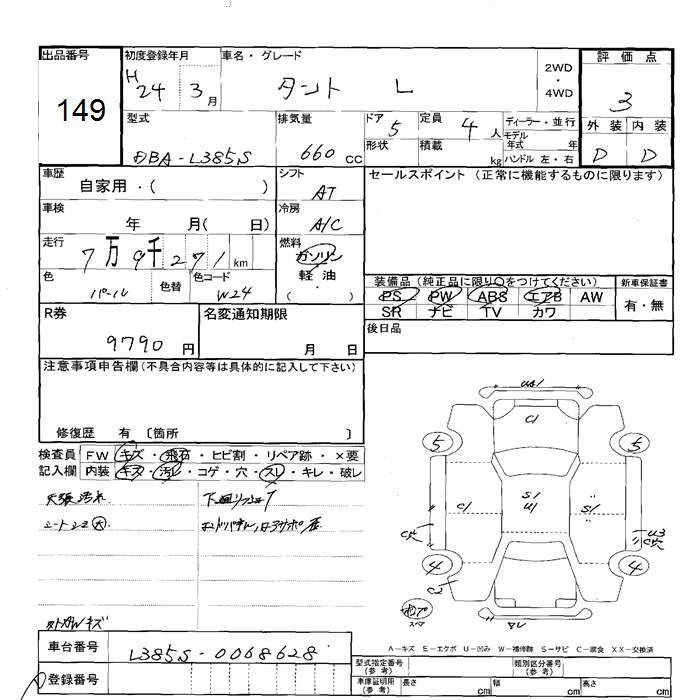 出品番号
149
初度登録年月
H
24 3月
車名・グレード
タント L
2WD
・
4WD
評価点
3
外装 内装
D D
型式
DBA-L385S
排気量
660cc
ドア
5
形状
定員
4人
積載
kg
ディーラー・並行
モデル
年式 年
ハンドル 左・右
車歴
自家用・( )
シフト
AT
セールスポイント (正常に機能するものに限ります)
車検
年 月( 日)
冷房
A/C
走行
7万9千271km
燃料
ガソリン
軽油
( )
色
パール
色替
色コード
W24
装備品(純正品に限り○をつけてください)
PS PW ABS エアB AW
SR ナビ TV カワ
新車保証書
有・無
R券
9790円
名変通知期限
月 日
後日品
注意事項申告欄(不具合内容等は具体的に記入して下さい)
修復歴 有 〔箇所 〕
検査員
記入欄
FW キズ・飛石・ヒビ割・リペア跡・×要
内装 キズ・汚レ・コゲ・穴・スレ・キレ・破レ
天張汚れ
シートシミ大
車台番号
L385S-0068628
登録番号
U1
C1
5 5
C1
S1
U1
S1
U3
4 4
C2
A-キズ E-エクボ U-凹み W-補修跡 S-サビ C-腐食 XX-交換済
型式指定番号
(参考)
類別区分番号
(参考)
車庫証明用
(参考)
長さ cm 幅 cm 高さ cm